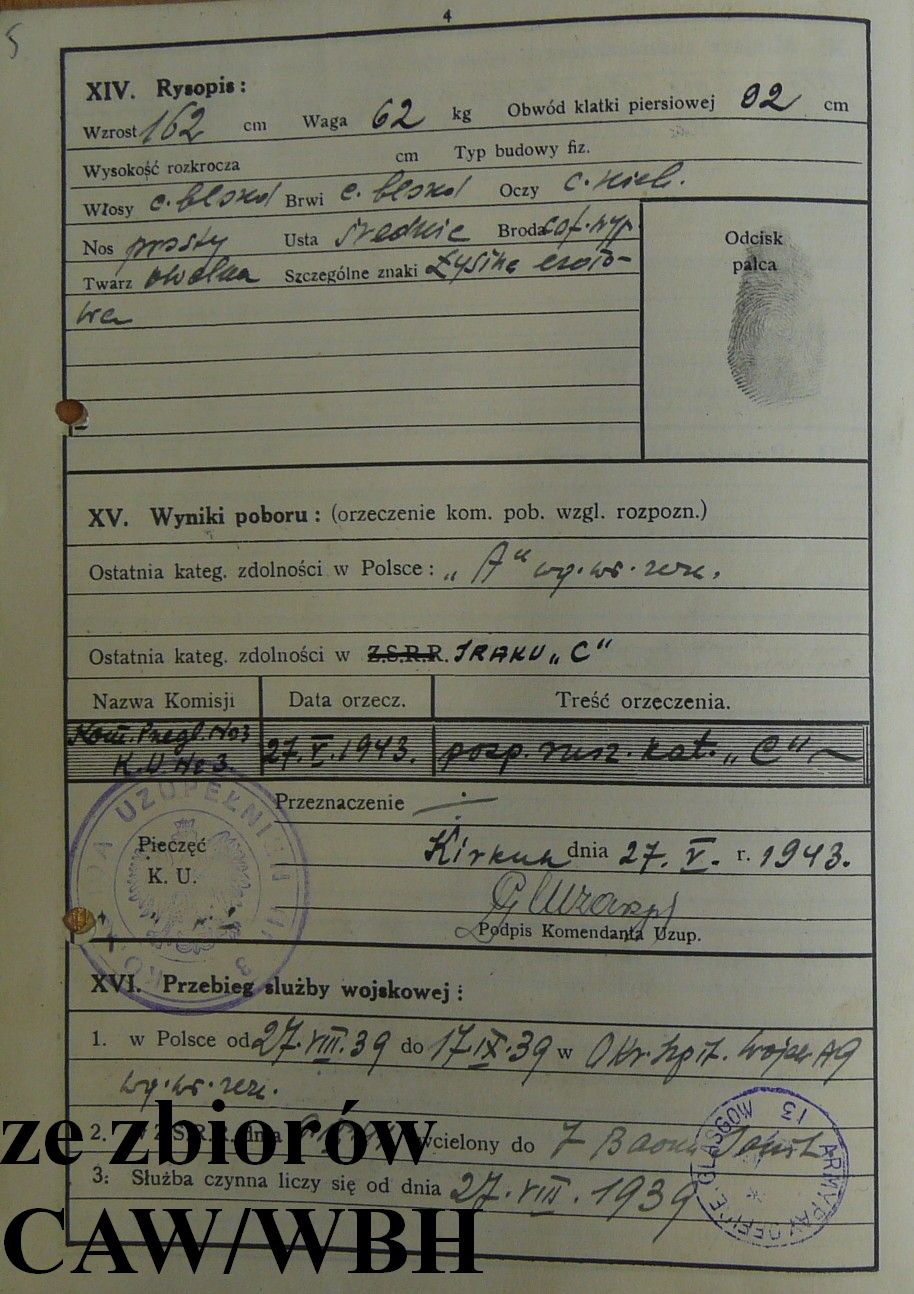 5
4
XIV. Rysopis:
Wzrost 162 cm Waga 62 kg Obwód klatki piersiowej 92 cm
Wysokość rozkrocza cm Typ budowy fiz.
Włosy c. blond Brwi c. blond Oczy
Nos prosty Usta średnie Broda
Twarz owalna Szczególne znaki Łysina czoło-
wa
Odcisk
palca
XV. Wyniki poboru: (orzeczenie kom. pob. wzgl. rozpozn.)
Ostatnia kateg. zdolności w Polsce: „A"
Ostatnia kateg. zdolności w Z.S.R.R. IRAKU „C"
Nazwa Komisji Data orzecz. Treść orzeczenia.
Kom. Przegl. No 3 27.V.1943. posp. rusz. kat. „C"
K.U. No 3.
Przeznaczenie
Pieczęć
K. U.
KOMENDA UZUPEŁNIEŃ Nr 3
Kirkuk dnia 27. V. r. 1943.
Podpis Komendanta Uzup.
XVI. Przebieg służby wojskowej:
1. w Polsce od 27.VIII.39 do 17.IX.39 w Okr. Szpit.
2. w Z.S.R.R. dnia wcielony do 7 Baonu Sanit.
3: Służba czynna liczy się od dnia 27.VIII.1939
ARMY PAY OFFICE. GLASGOW 13
ze zbiorów
CAW/WBH